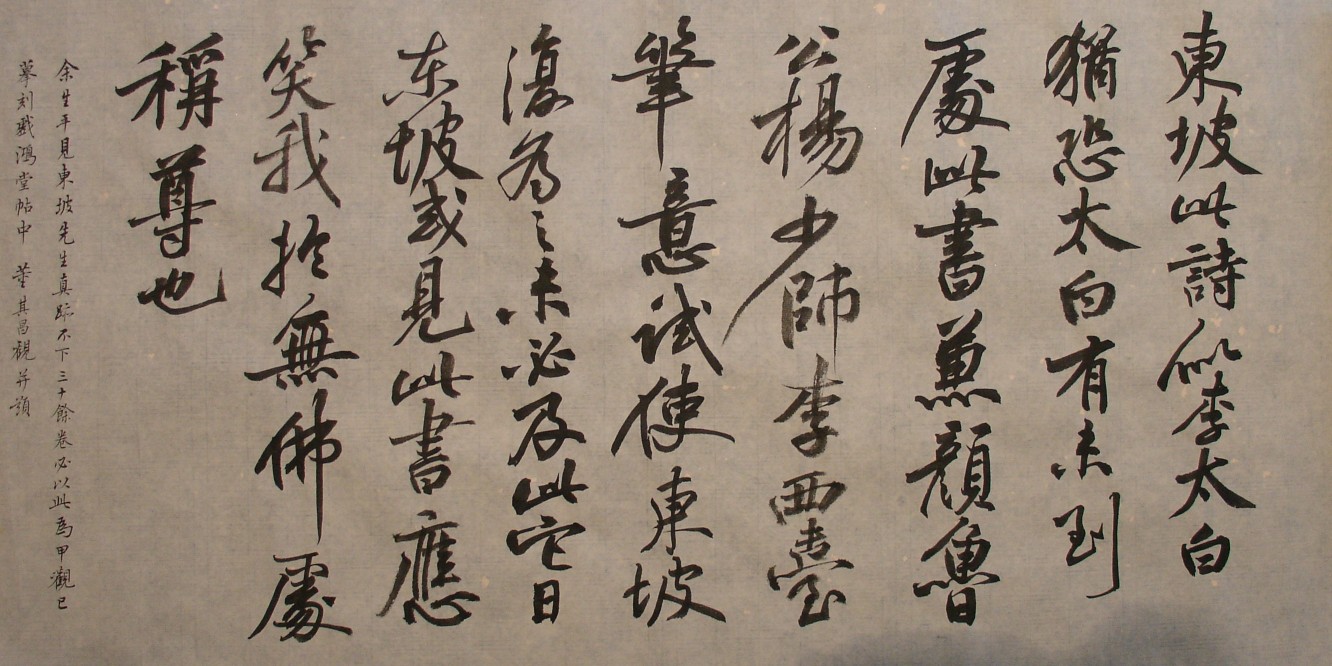 東坡此詩似李太白
猶恐太白有未到
處此書兼顏魯
公楊少師李西臺
筆意試使東坡
復為之未必及此它日
东坡或見此書應
笑我於無佛處
稱尊也
余生平見東坡先生真跡不下三十餘卷必以此為甲觀已
摹刻戲鴻堂帖中 董其昌觀并題